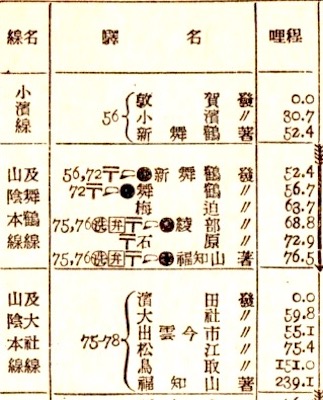 線名 驛名 哩程
小濱線
56 敦賀 發 0.0
小濱 〃 30.7
新舞鶴 著 52.4
山陰本線 及舞鶴線
56,72〒 新舞鶴 發 52.4
72〒 舞鶴 〃 56.7
梅迫 〃 63.7
75,76 洗 弁 〒 綾部 〃 68.8
〒石原 〃 72.9
75,76 洗 弁 〒 福知山 著 76.5
山陰本線 及大社線
75-78 濱田 發 0.0
大社 〃 59.8
出雲今市 〃 55.1
松江 〃 75.4
鳥取 〃 151.0
福知山 著 239.1